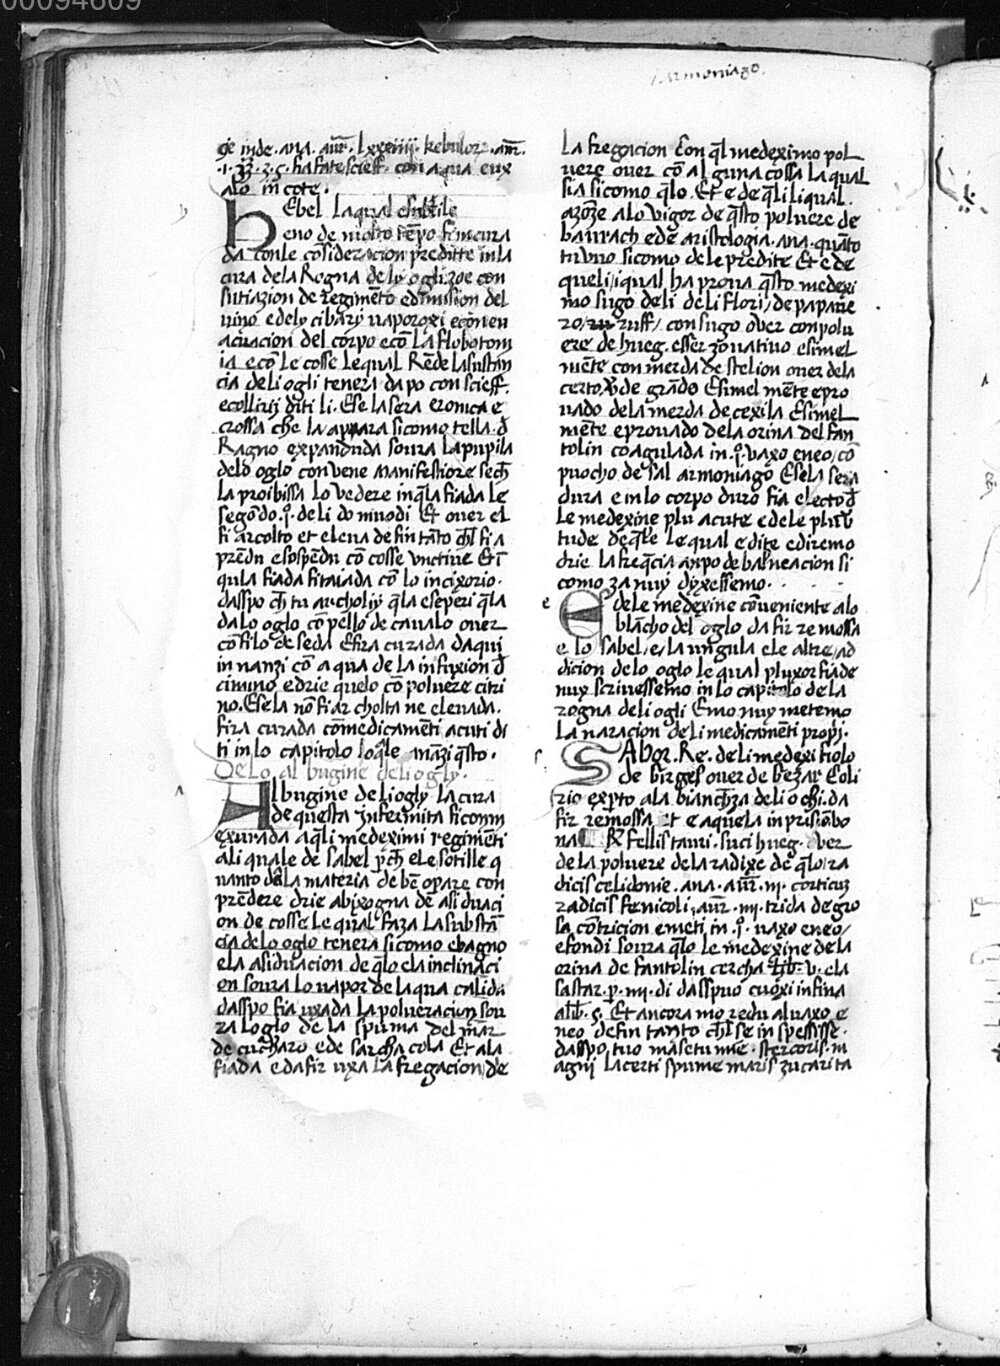 00094609
Armoniago.
ge inde. ana. aur̄. lxxiiii. kebulor. aur̄.
.1. ʒʒ. 2. ς. fia fate scieff. con aqua cux
alo in cote.
hEbel la qual e subtile
e no de molto tempo firmeura
da con le cōsideracion preditte in la
cura dela Rogna deli ogli. zoe con
stituazion de regimēto e dimission del
uino e dely cibarij uaporoxi e con eu
acuacion del corpo e cō la flobotom
ia e cō le cosse le qual Rēde la sustan
cia deli ogli tenera dapo con scieff.
e collirij diti li. E se la sera cronica e
crossa che la appara sicomo tella. d̄
Ragno expanduda soura la pupila
delo oglo con vene manifestiore sech̄
la proibissa lo vedere in q̄la fiada le
segōdo. q̄. de li do muodi Et ouer el
fi arcolto et eleua de fin tāto ch̄l fi a
prēdu e sospēdu cō cosse vnctiue Et ī
q̄ula fiada fi taiada cō lo incixorio.
dasspo ch̄ tu archolij q̄la e seperi q̄la
dalo oglo cō pello de cauallo ouer
cō filo de seda E fira curada da qui
in nanzi cō a qua de la infuxion d̄
cimino e drie quelo cō poluere citri
no. E se la nō fi ar cholta ne eleuada.
fira curada cō medicamēti acuti di
ti in lo capitolo lo q̄le inanzi q̄sto.
De lo albugine deli ogly.
Albugine de li ogly la cura
de questa infermita si como
exurada a q̄li medeximi regimēti
ali quale de sabel p̄ch̄ ele sotille q
uanto dela materia de bē opare con
prēdere drie abixogna de asiduaci
on de cosse le qual faza la substā
cia delo oglo tenera sicomo e bagno
e la asiduacion de q̄lo e la inclinaci
on soura lo uapor de la qua calida
dasspo fia uxada la poluerazion sou
ra l oglo de la spuma del mar
de cucharo e de sarcha cola Et ala
fiada e da fir uxa la fregacion de
La fregacion con q̄l medeximo pol
uere ouer cō alguna cossa la qual
sia sicomo q̄lo. Et e de q̄li li qual.
azōze alo vigor de q̄sto poluere de
baurach e dē aristologia. ana. quāto
tu vno sicomo de le predite Et e de
queli i qual ha proua q̄sto medexi
mo sugo de li de li flori de papaue
ro ruff con sugo ouer con polu
ere de hueg. esser zouatiuo e simel
mēte con merda de stelion ouer dela
certo v̄de grādo E simel mēte e pro
uado dela merda de cexila E simel
mēte e prouado de la orina del fan
tolin coagulada in. q̄. vaxo eneo cō
puocho de sal armoniago E se la sera
dura e in lo corpo duro fia electo d̄
le medexine plu acute e de le plu v̄
tude dē q̄le le qual e dite e diremo
drie la freq̄cia anpo de balneacion si
como za nuy dyxessemo.
e
E dele medexine cōueniente alo
blācho del oglo da fir remossa
e lo sabel e la ungula e le altre ad
dicion delo oglo le qual pluxor fiade
nuy scriuessemo in lo capitolo de la
rogna deli ogli E mo nuy metemo
la naracion de li medicamēti propij.
s
SAbor. Re. de li medexi fiolo
de birges ouer de bezar Coli
rio exp̄to ala bianch̄za de li ochi. da
fir remossa Et e aquela in pris. ābo
na ℞ fellis tauri. suci hueg. ouer
de la poluere de la radixe de q̄lo. ra
dicis celidonie. ana. aur̄. iij. corticus
radicis feniculi. aur̄. iiij. trida de gro
sa cōtricion e meti in. q̄. vaxo eneo
e fondi soura q̄lo le medexine de la
orina de fantolin cercha lib̄. v. e la
sastar. p. iiij. di dasspuo cuoxi in fin a
a lib̄. ς. Et ancora mo redu al vaxo e
neo de fin tanto ch̄l se in spessisse.
dasspo tuo masetunie. stercoris. m
agni lacerti spume maris zucarita